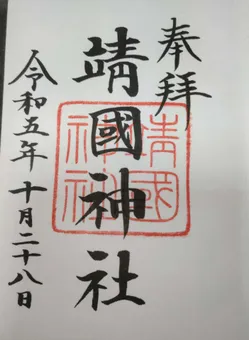 奉拝
靖國神社
靖國神社
令和五年十月二十八日